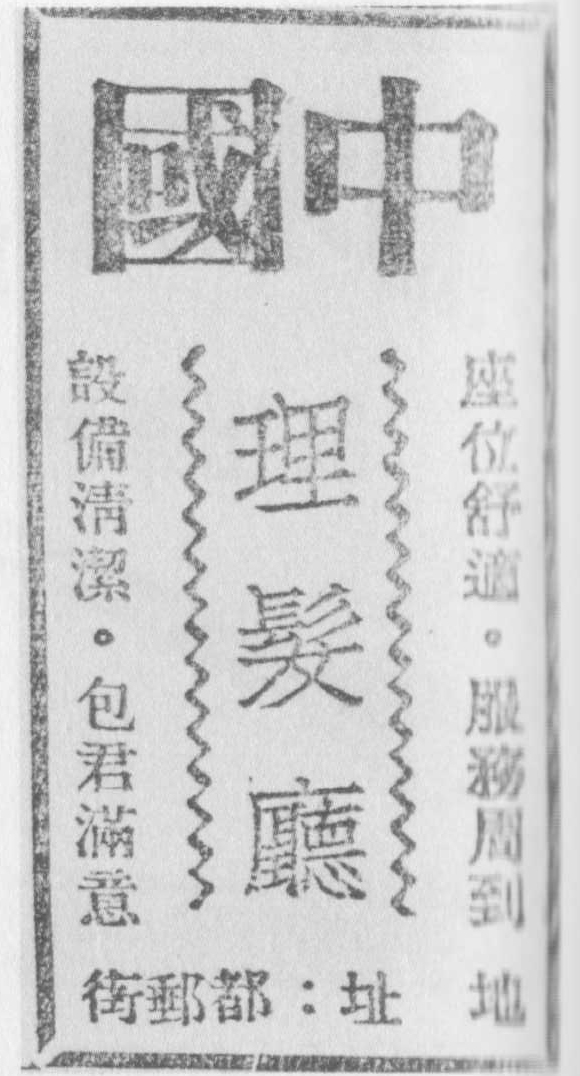 中國
座位舒適。服務周到
理髮廳
設備清潔。包君滿意
地址：都郵街